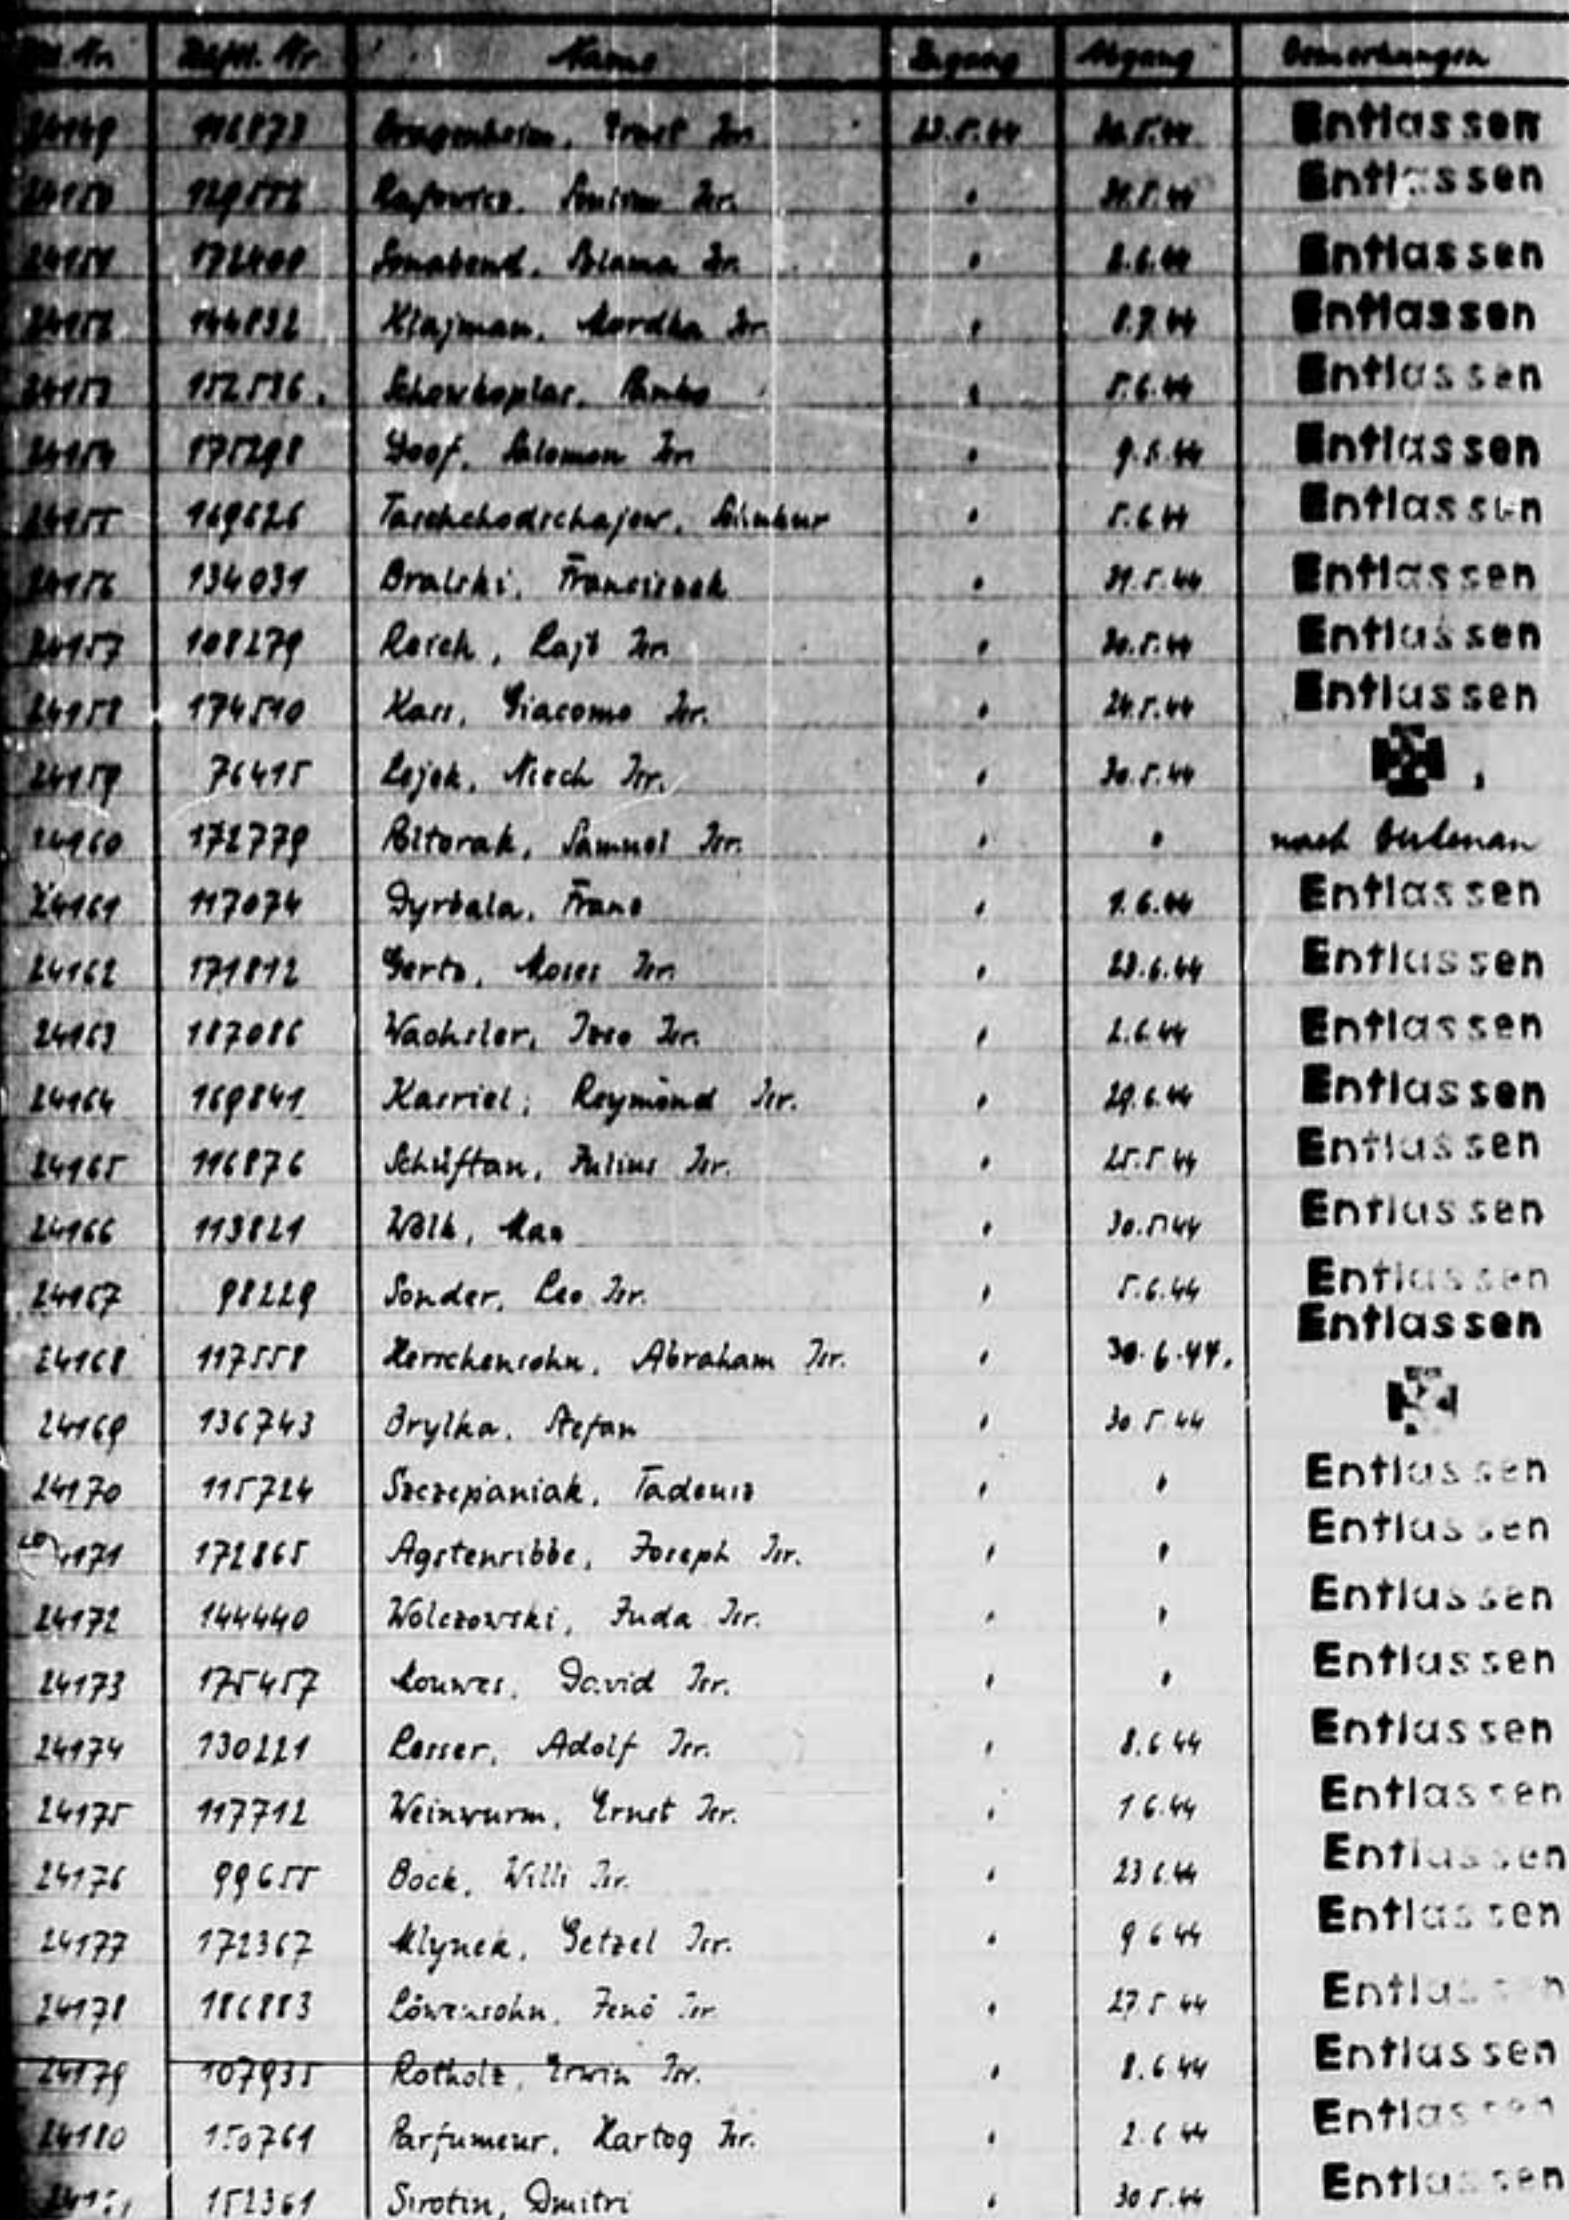 Nr. Name Zugang Abgang Bemerkungen
24149 116873 Ernst Isr. 23.5.44 30.5.44 Entlassen
24150 " 31.5.44 Entlassen
24151 Sonabend, Isr. " Entlassen
24152 144832 Klajman, Mordka Isr. " 8.7.44 Entlassen
24153 152536 " 5.6.44 Entlassen
24154 175298 Goof, Salomon Isr. " Entlassen
24155 169626 Taschchodschajew, " 5.6.44 Entlassen
24156 134031 Bralski, Franciszek " 31.5.44 Entlassen
24157 108279 Reich, Lajb Isr. " 30.5.44 Entlassen
24158 174510 Giacomo Isr. " 24.5.44 Entlassen
24159 76415 Lejek, Isr. " 30.5.44
24160 172779 Poltorak, Samuel Isr. " " nach Birkenau
24161 117074 Dyrbala, Franc " 1.6.44 Entlassen
24162 171812 Gerts, Moses Isr. " 23.6.44 Entlassen
24163 187086 Wachsler, Ivso Isr. " 2.6.44 Entlassen
24164 169841 Kasriel, Reymond Isr. " 29.6.44 Entlassen
24165 116876 Schüftan, Julius Isr. " 25.5.44 Entlassen
24166 113821 Wolk, Max " 30.5.44 Entlassen
24167 98229 Sonder, Leo Isr. " 5.6.44 Entlassen
24168 117558 Herschensohn, Abraham Isr. " 30.6.44. Entlassen
24169 136743 Brylka, Stefan " 30.5.44
24170 115724 Szczepaniak, Tadeusz " " Entlassen
24171 172865 Agstenribbe, Joseph Isr. " " Entlassen
24172 144440 Wolczowski, Juda Isr. " " Entlassen
24173 175457 Mouwes, David Isr. " " Entlassen
24174 130221 Lesser, Adolf Isr. " 8.6.44 Entlassen
24175 117712 Weinwurm, Ernst Isr. " 1.6.44 Entlassen
24176 99655 Bock, Willi Isr. " 23.6.44 Entlassen
24177 172367 Mlynek, Getzel Isr. " 9.6.44 Entlassen
24178 186883 Löwensohn, Jenö Isr. " 27.5.44 Entlassen
24179 107935 Rotholz, Erwin Isr. " 8.6.44 Entlassen
24180 150761 Parfumeur, Hartog Isr. " 2.6.44 Entlassen
152361 Sirotin, Dmitri " 30.5.44 Entlassen